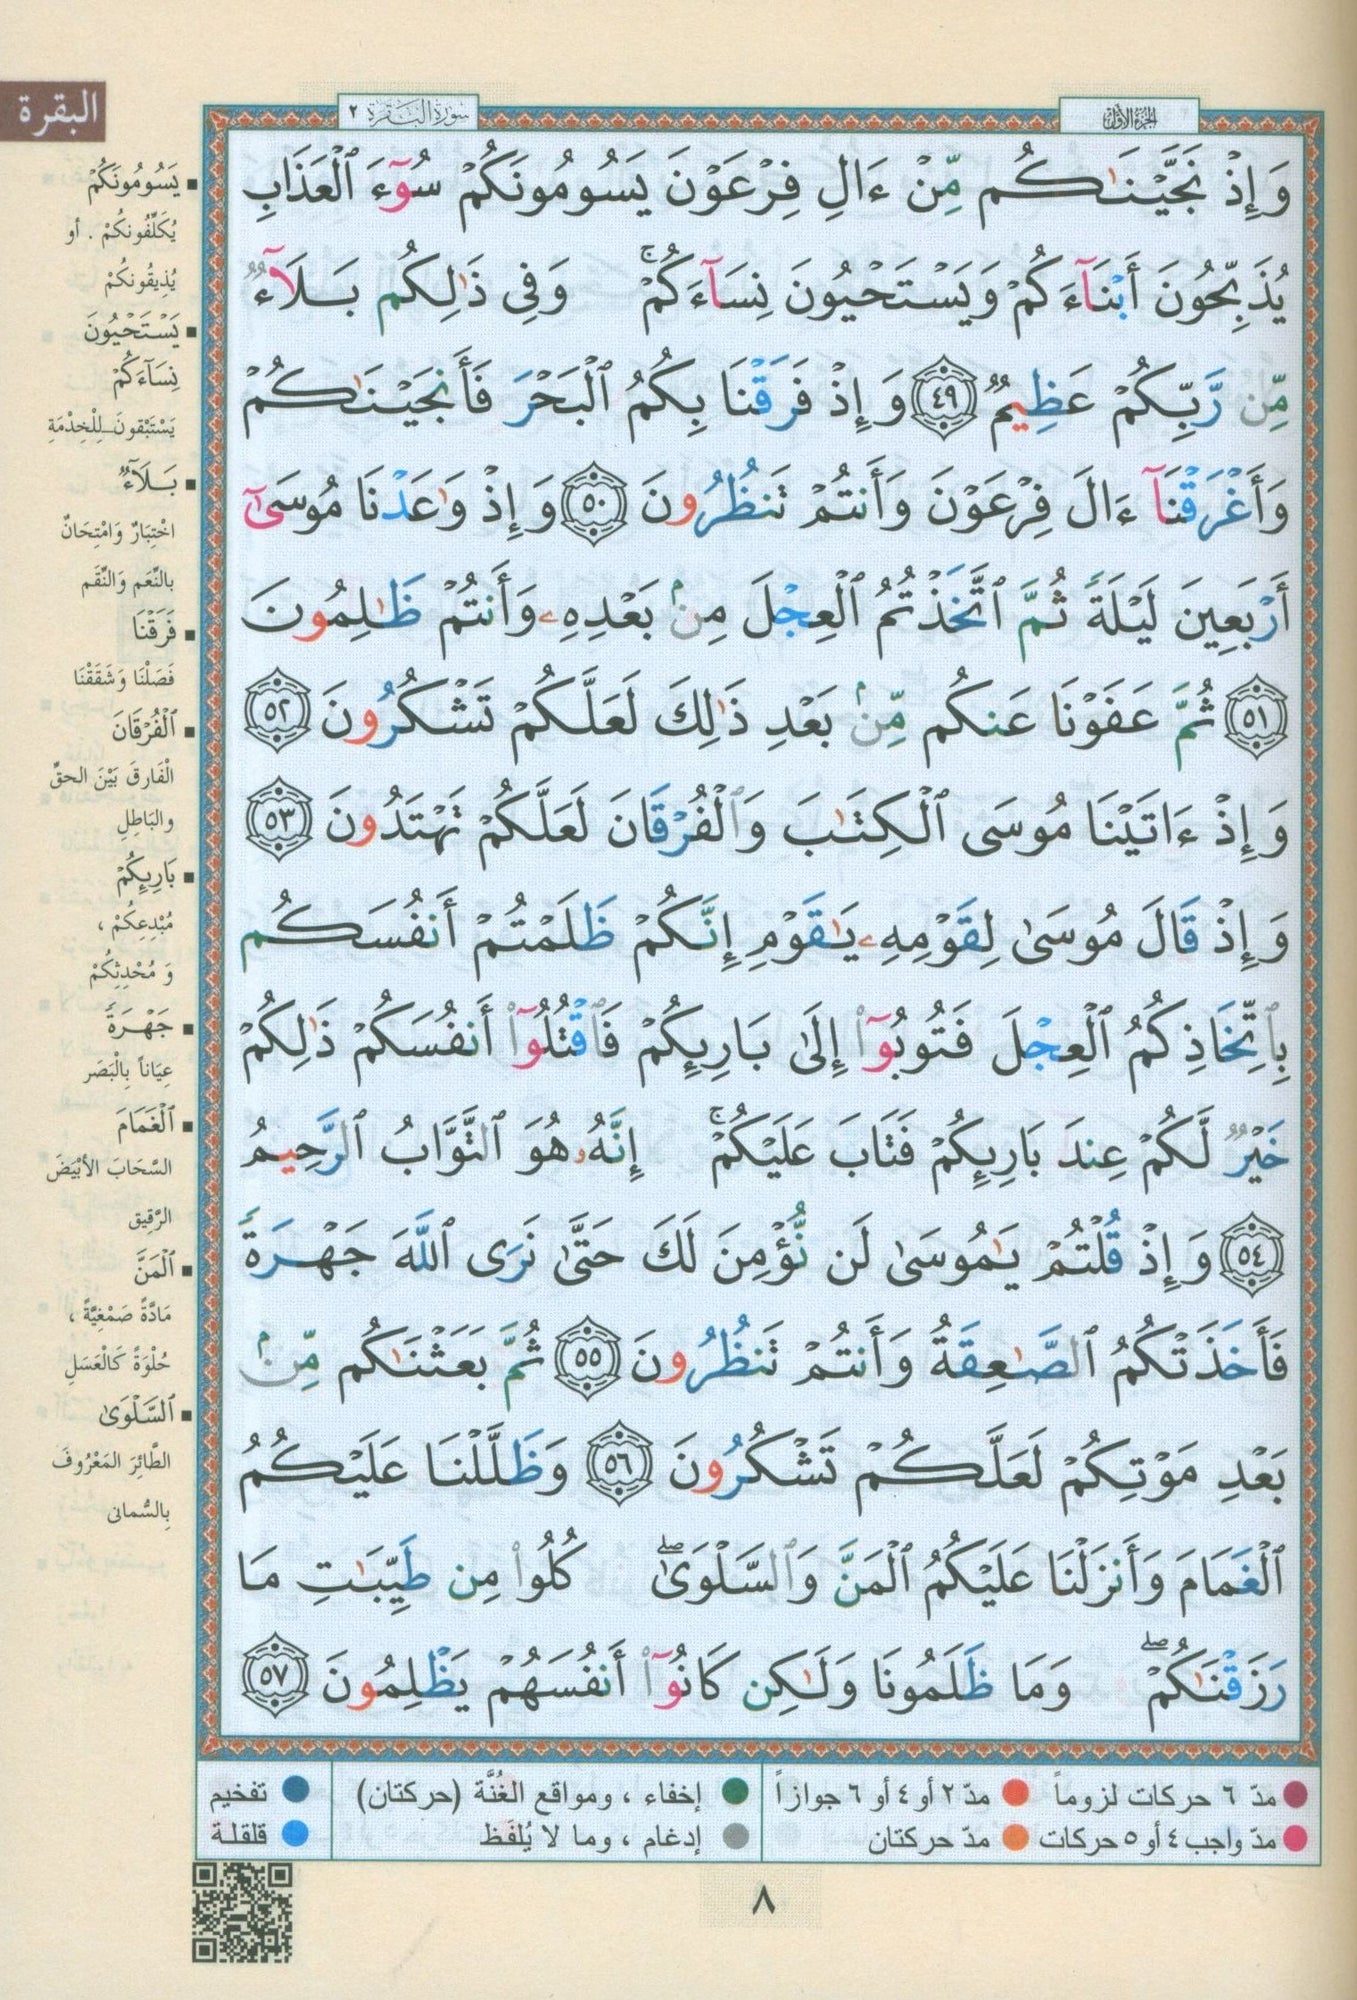 الجزء الأول
سورة البقرة ٢
البقرة
وَإِذْ نَجَّيْنَٰكُم مِّنْ ءَالِ فِرْعَوْنَ يَسُومُونَكُمْ سُوٓءَ ٱلْعَذَابِ
يُذَبِّحُونَ أَبْنَآءَكُمْ وَيَسْتَحْيُونَ نِسَآءَكُمْ ۚ وَفِى ذَٰلِكُم بَلَآءٌ
مِّن رَّبِّكُمْ عَظِيمٌ ٤٩ وَإِذْ فَرَقْنَا بِكُمُ ٱلْبَحْرَ فَأَنجَيْنَٰكُمْ
وَأَغْرَقْنَآ ءَالَ فِرْعَوْنَ وَأَنتُمْ تَنظُرُونَ ٥٠ وَإِذْ وَٰعَدْنَا مُوسَىٰٓ
أَرْبَعِينَ لَيْلَةً ثُمَّ ٱتَّخَذْتُمُ ٱلْعِجْلَ مِنۢ بَعْدِهِۦ وَأَنتُمْ ظَٰلِمُونَ
٥١ ثُمَّ عَفَوْنَا عَنكُم مِّنۢ بَعْدِ ذَٰلِكَ لَعَلَّكُمْ تَشْكُرُونَ ٥٢
وَإِذْ ءَاتَيْنَا مُوسَى ٱلْكِتَٰبَ وَٱلْفُرْقَانَ لَعَلَّكُمْ تَهْتَدُونَ ٥٣
وَإِذْ قَالَ مُوسَىٰ لِقَوْمِهِۦ يَٰقَوْمِ إِنَّكُمْ ظَلَمْتُمْ أَنفُسَكُم
بِٱتِّخَاذِكُمُ ٱلْعِجْلَ فَتُوبُوٓا۟ إِلَىٰ بَارِئِكُمْ فَٱقْتُلُوٓا۟ أَنفُسَكُمْ ذَٰلِكُمْ
خَيْرٌ لَّكُمْ عِندَ بَارِئِكُمْ فَتَابَ عَلَيْكُمْ ۚ إِنَّهُۥ هُوَ ٱلتَّوَّابُ ٱلرَّحِيمُ
٥٤ وَإِذْ قُلْتُمْ يَٰمُوسَىٰ لَن نُّؤْمِنَ لَكَ حَتَّىٰ نَرَى ٱللَّهَ جَهْرَةً
فَأَخَذَتْكُمُ ٱلصَّٰعِقَةُ وَأَنتُمْ تَنظُرُونَ ٥٥ ثُمَّ بَعَثْنَٰكُم مِّنۢ
بَعْدِ مَوْتِكُمْ لَعَلَّكُمْ تَشْكُرُونَ ٥٦ وَظَلَّلْنَا عَلَيْكُمُ
ٱلْغَمَامَ وَأَنزَلْنَا عَلَيْكُمُ ٱلْمَنَّ وَٱلسَّلْوَىٰ ۖ كُلُوا۟ مِن طَيِّبَٰتِ مَا
رَزَقْنَٰكُمْ ۖ وَمَا ظَلَمُونَا وَلَٰكِن كَانُوٓا۟ أَنفُسَهُمْ يَظْلِمُونَ ٥٧
▪ يَسُومُونَكُمْ
يُكَلِّفُونَكُمْ . أو
يُذِيقُونكُمْ
▪ يَسْتَحْيُونَ
نِسَآءَكُمْ
يَسْتَبْقونَ_لِلْخِدْمَةِ
▪ بَلَآءٌ
اخْتِبَارٌ وَامْتِحَانٌ
بالنِّعَم وَالنِّقَم
▪ فَرَقْنَا
فَصَلْنَا وَشَقَقْنَا
▪ ٱلْفُرْقَانَ
الْفَارقَ بَيْنَ الحقِّ
والبَاطِلِ
▪ بَارِئِكُمْ
مُبْدِعِكُمْ ،
وَ مُحْدِثِكُمْ
▪ جَهْرَةً
عِيَاناً بِالْبَصَر
▪ ٱلْغَمَامَ
السَّحَابَ الأبْيَضَ
الرَّقِيق
▪ ٱلْمَنَّ
مَادَّةً صَمْغِيَّةً ،
حُلْوَةً كَالْعَسَلِ
▪ ٱلسَّلْوَىٰ
الطَّائِرَ المَعْرُوفَ
بِالسُّمانى
مدّ ٦ حركات لزوماً مدّ ٢ أو ٤ أو ٦ جوازاً
مدّ واجب ٤ أو ٥ حركات مدّ حركتان
إخفاء ، ومواقع الغُنَّة (حركتان)
إدغام ، وما لا يُلفَظ
تفخيم
قلقلة
٨